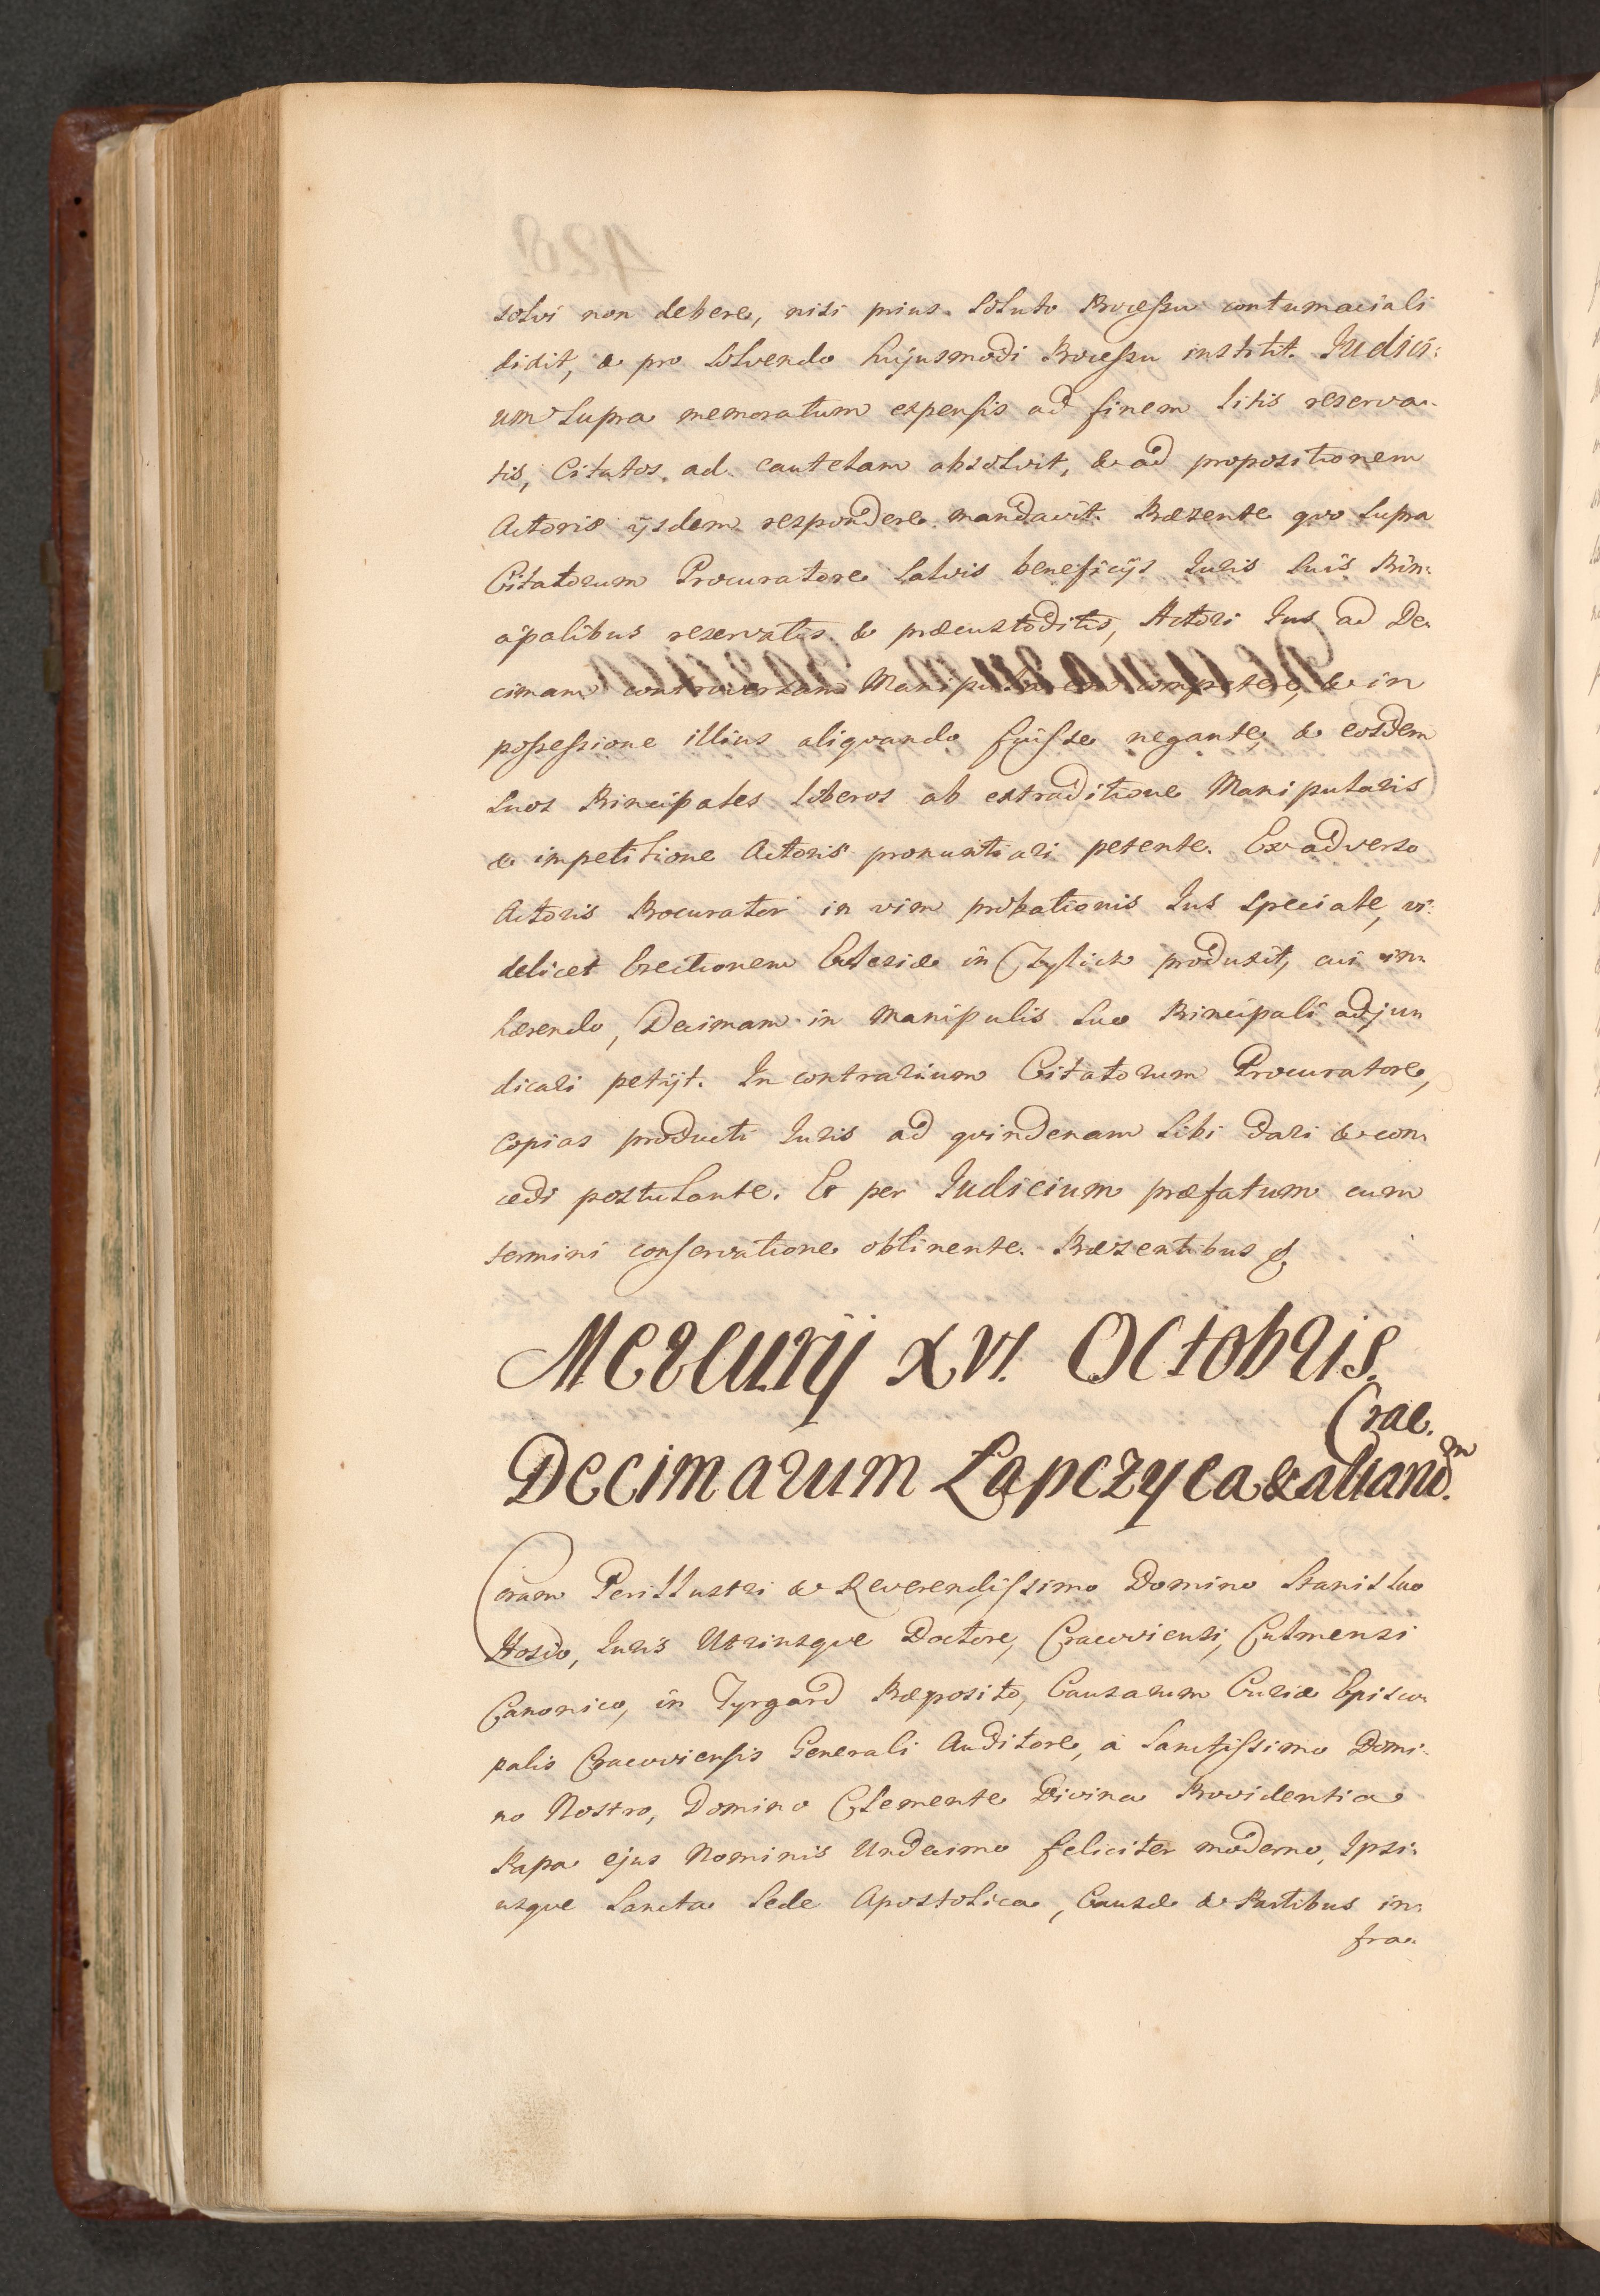 solvi non debere, nisi prius soluto Processu contumaciali
didit, & pro solvendo hujusmodi Processu institit. Judici:
um supra memoratum expensis ad finem litis reserva:
tis, Citatos ad cautelam absolvit, & ad propositionem
Actoris ijsdem respondere mandavit. Præsente quo supra
Citatorum Procuratore salvis beneficijs Juris suis Prin:
cipalibus reservatis & præcustoditis, Actori Jus ad De:
cimam controversam Manipularem competere, & in
possessione illius aliquando fuisse negante, & eosdem
suos Principales liberos ab extraditione Manipularis
& impetitione Actoris pronuntiari petente. Ex adverso
Actoris Procurator in vim probationis Jus speciale, vi:
delicet Erectionem Ecclesiæ in Czylick produxit, cui in:
hærendo, Decimam in Manipulis suo Principali adju:
dicari petijt. In contrarium Citatorum Procuratore,
copias producti Juris ad quindenam sibi dari & con:
cedi postulante. Et per Judicium præfatum cum
termini conservatione obtinente. Præsentibus &
Mercurij XVI. Octobris.
Crac.
Decimarum Łapczyca & aliard.m
Coram Perillustri & Reverendissimo Domino Stanislao
Hosio, Juris Utriusque Doctore, Cracoviensi, Culmensi
Canonico, in Tyrgard Præposito, Causarum Curiæ Episco:
palis Cracoviensis Generali Auditore, à Sanctissimo Domi:
no Nostro, Domino Clemente Divina Providentia
Papa ejus Nominis Undecimo feliciter moderno, Ipsi:
usque Sancta Sede Apostolica, Causæ & Partibus in:
fra: